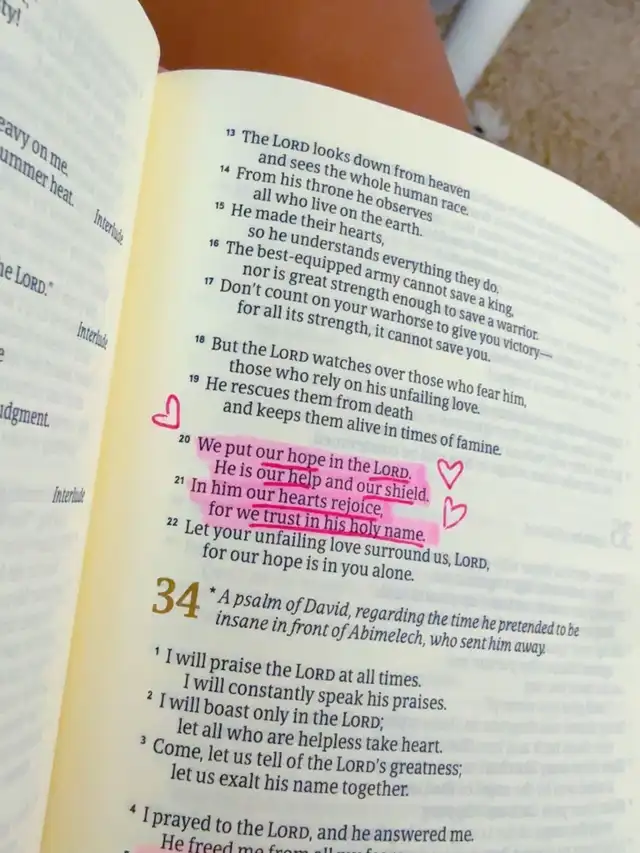 ty!
eavy on me.
ummer heat.
Interlude
he LORD."
Interlude
e
udgment.
Interlude
13 The LORD looks down from heaven
and sees the whole human race.
14 From his throne he observes
all who live on the earth.
15 He made their hearts,
so he understands everything they do.
16 The best-equipped army cannot save a king,
nor is great strength enough to save a warrior.
17 Don't count on your warhorse to give you victory—
for all its strength, it cannot save you.
18 But the LORD watches over those who fear him,
those who rely on his unfailing love.
19 He rescues them from death
and keeps them alive in times of famine.
20 We put our hope in the LORD.
He is our help and our shield.
21 In him our hearts rejoice,
for we trust in his holy name.
22 Let your unfailing love surround us, LORD,
for our hope is in you alone.
34 *A psalm of David, regarding the time he pretended to be
insane in front of Abimelech, who sent him away.
1 I will praise the LORD at all times.
I will constantly speak his praises.
2 I will boast only in the LORD;
let all who are helpless take heart.
3 Come, let us tell of the LORD's greatness;
let us exalt his name together.
4 I prayed to the LORD, and he answered me.
He freed me from all my